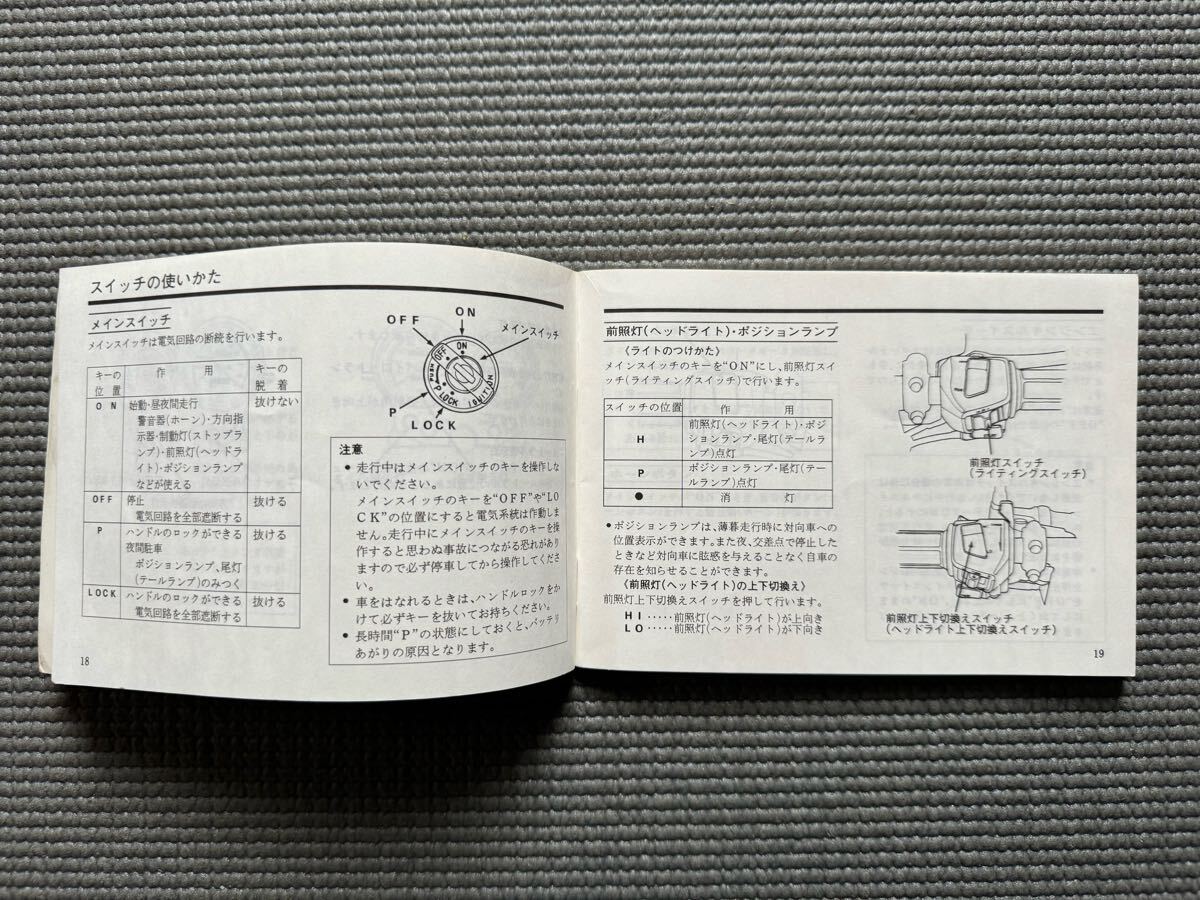 スイッチの使いかた
メインスイッチ
メインスイッチは電気回路の断続を行います。
キーの位置 作用 キーの脱着
ON 始動・昼夜間走行 抜けない
警音器(ホーン)・方向指
示器・制動灯(ストップラ
ンプ)・前照灯(ヘッドラ
イト)・ポジションランプ
などが使える
OFF 停止 抜ける
電気回路を全部遮断する
P ハンドルのロックができる 抜ける
夜間駐車
ポジションランプ、尾灯
(テールランプ)のみつく
LOCK ハンドルのロックができる 抜ける
電気回路を全部遮断する
18
OFF
ON
メインスイッチ
P
LOCK
ON
OFF
PUSH
P
LOCK
IGNITION
注意
● 走行中はメインスイッチのキーを操作しな
いでください。
メインスイッチのキーを“OFF”や“LO
CK”の位置にすると電気系統は作動しま
せん。走行中にメインスイッチのキーを操
作すると思わぬ事故につながる恐れがあり
ますので必ず停車してから操作してくださ
い。
● 車をはなれるときは、ハンドルロックをか
けて必ずキーを抜いてお持ちください。
● 長時間“P”の状態にしておくと、バッテリ
あがりの原因となります。
前照灯(ヘッドライト)・ポジションランプ
〈ライトのつけかた〉
メインスイッチのキーを“ON”にし、前照灯スイ
ッチ(ライティングスイッチ)で行います。
スイッチの位置 作用
H 前照灯(ヘッドライト)・ポジ
ションランプ・尾灯(テールラ
ンプ)点灯
P ポジションランプ・尾灯(テー
ルランプ)点灯
● 消灯
●ポジションランプは、薄暮走行時に対向車への
位置表示ができます。また夜、交差点で停止した
ときなど対向車に眩惑を与えることなく自車の
存在を知らせることができます。
〈前照灯(ヘッドライト)の上下切換え〉
前照灯上下切換えスイッチを押して行います。
HI‥‥‥前照灯(ヘッドライト)が上向き
LO‥‥‥前照灯(ヘッドライト)が下向き
前照灯スイッチ
(ライティングスイッチ)
前照灯上下切換えスイッチ
(ヘッドライト上下切換えスイッチ)
19